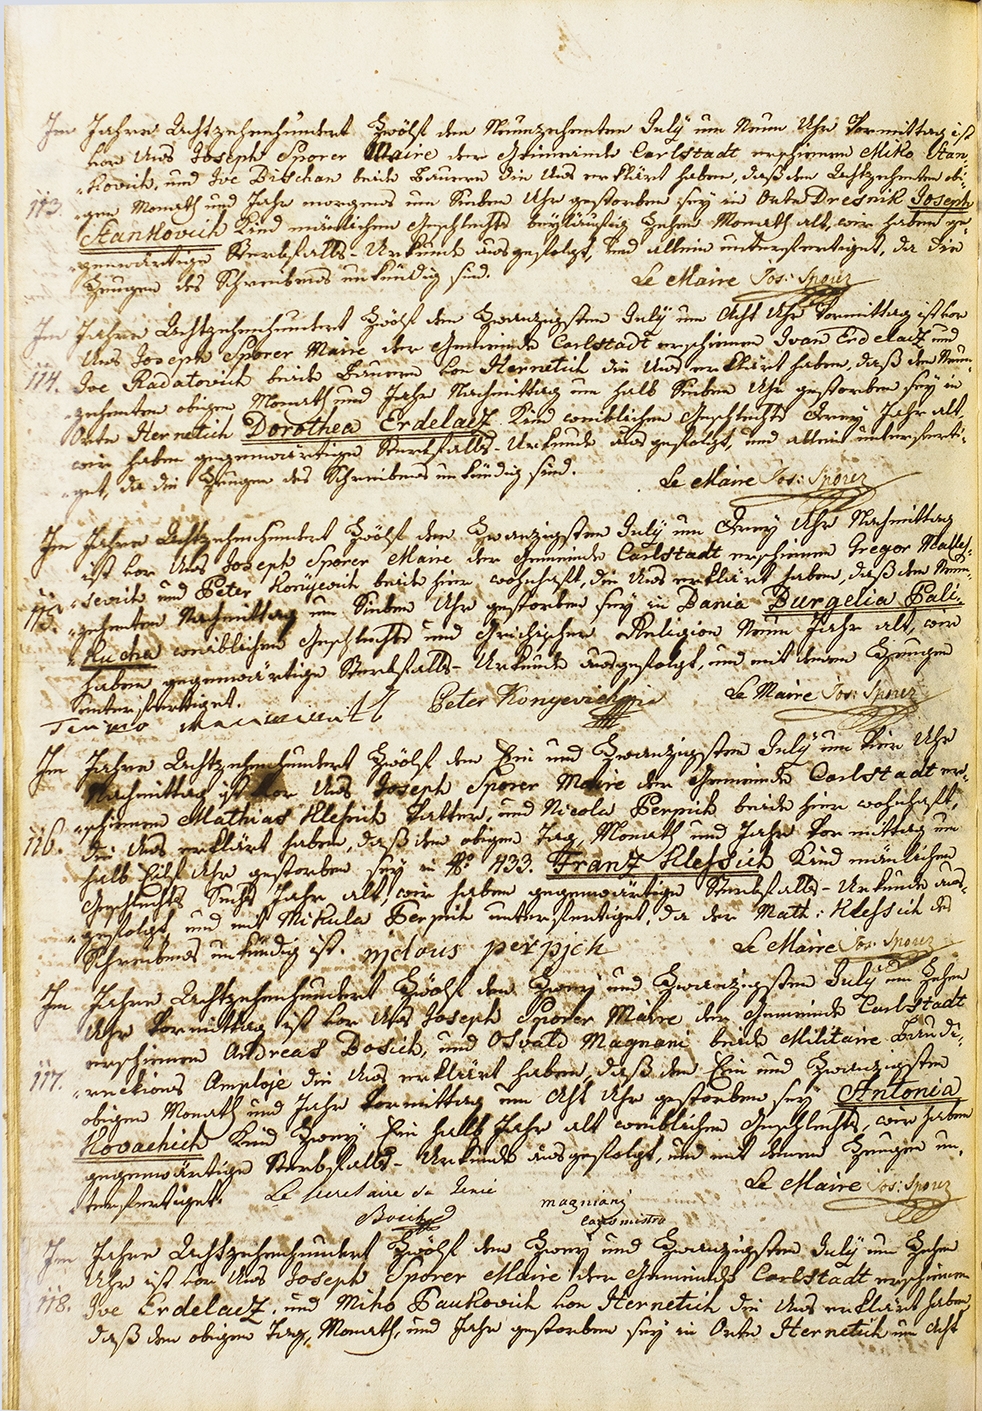 Im Jahre Achtzehenhundert Zwölf den Neunzehenten July um Neun Uhr Vormittag ist
vor Uns Joseph Sporer Maire der Gemeinde Carlstadt erschienen Miko Stan-
kovich, und Ive Bitschan beide Bauern die Uns erklärt haben, daß den Achtzehenten obi-
113. gen Monath und Jahr morgens um Sieben Uhr gestorben sey in Orte Dresnik Joseph
Stankovich Kind mänlichen Geschlechts beyläufig Zehen Monath alt, wir haben ge-
genwärtige Sterbfalls-Urkunde ausgefolgt, und allein unterfertiget, da die
Zeugen des Schreibens unkündig sind. Le Maire Jos: Sporer
Im Jahre Achtzehenhundert Zwölf den Zwanzigsten July um Acht Uhr Vormittag ist vor
Uns Joseph Sporer Maire der Gemeinde Carlstadt erschienen Ivan Erdelacz und
114. Ive Radatovich beide Bauern von Hernetich die Uns erklärt haben, daß den Neun-
zehenten obigen Monath und Jahr Nachmittag um halb Sieben Uhr gestorben sey in
Orte Hernetich Dorothea Erdelacz Kind weiblichen Geschlechts Drey Jahr alt
wir haben gegenwärtige Sterbfalls-Urkunde ausgefolgt, und allein unterferti-
get, da die Zeugen des Schreibens unkündig sind. Le Maire Jos: Sporer
Im Jahre Achtzehenhundert Zwölf den Zwanzigsten July um Drey Uhr Nachmittag
ist vor Uns Joseph Sporer Maire der Gemeinde Carlstadt erschienen Gregor Malles-
sevich und Peter Konyevich beide hier wohnhaft, die Uns erklärt haben, daß den Neun-
115. zehenten Nachmittag um Sieben Uhr gestorben sey in Bania Durgelia Pali-
kucha weiblichen Geschlechts und Grichischer Religion Neun Jahr alt, wir
haben gegenwärtige Sterbfalls-Urkunde ausgefolgt, und mit denen Zeugen
unterfertiget. Peter Konyevich Le Maire Jos: Sporer
Im Jahre Achtzehenhundert Zwölf den Ein und Zwanzigsten July um vier Uhr
Nachmittag ist vor Uns Joseph Sporer Maire der Gemeinde Carlstadt er-
schienen Mathias Klessich Vatter, und Nicola Perpich beide hier wohnhaft,
116. die Uns erklärt haben, daß den obigen Tag, Monath und Jahr Vormittag um
halb Eilf Uhr gestorben sey in No 433. Franz Klessich Kind mänlichen
Geschlechts Sechs Jahr alt, wir haben gegenwärtige Sterbfalls-Urkunde aus-
gefolgt, und mit Nikula Perpich unterfertiget, da der Math: Klessich des
Schreibens unkündig ist. njclous perpjch Le Maire Jos: Sporer
Im Jahre Achtzehenhundert Zwölf den Zwey und Zwanzigsten July um Zehen
Uhr Vormittag ist vor Uns Joseph Sporer Maire der Gemeinde Carlstadt
erschienen Andreas Bosich, und Osvald Magnani beide Militaire Baudi-
117. rections Amploje die Uns erklärt haben, daß den Ein und Zwanzigsten
obigen Monath und Jahr Vormittag um Acht Uhr gestorben sey Antonia
Kovachich Kind Zwey Ein halb Jahr alt weiblichen Geschlechts, wir haben
gegenwärtige Sterbfalls-Urkunde ausgefolgt, und mit denen Zeugen un-
terfertiget. Le Secretaire du Genie magniani Le Maire Jos: Sporer
Bosich capo mistro
Im Jahre Achtzehenhundert Zwölf den Zwey und Zwanzigsten July um Zehen
Uhr ist vor Uns Joseph Sporer Maire der Gemeinde Carlstadt erschienen
118. Ive Erdelacz, und Miko Paukovich von Hernetich die Uns erklärt haben,
daß den obigen Tag, Monath, und Jahr gestorben sey in Orte Hernetich um Acht